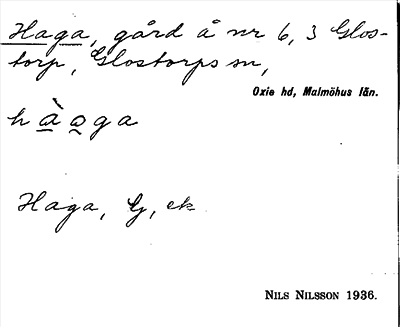 Haga, gård å nr 6, 3 Glos-
torp, Glostorps sn,
Oxie hd, Malmöhus län.
h à̲ a̰ g a
Haga, Lj, ek
NILS NILSSON 1936.